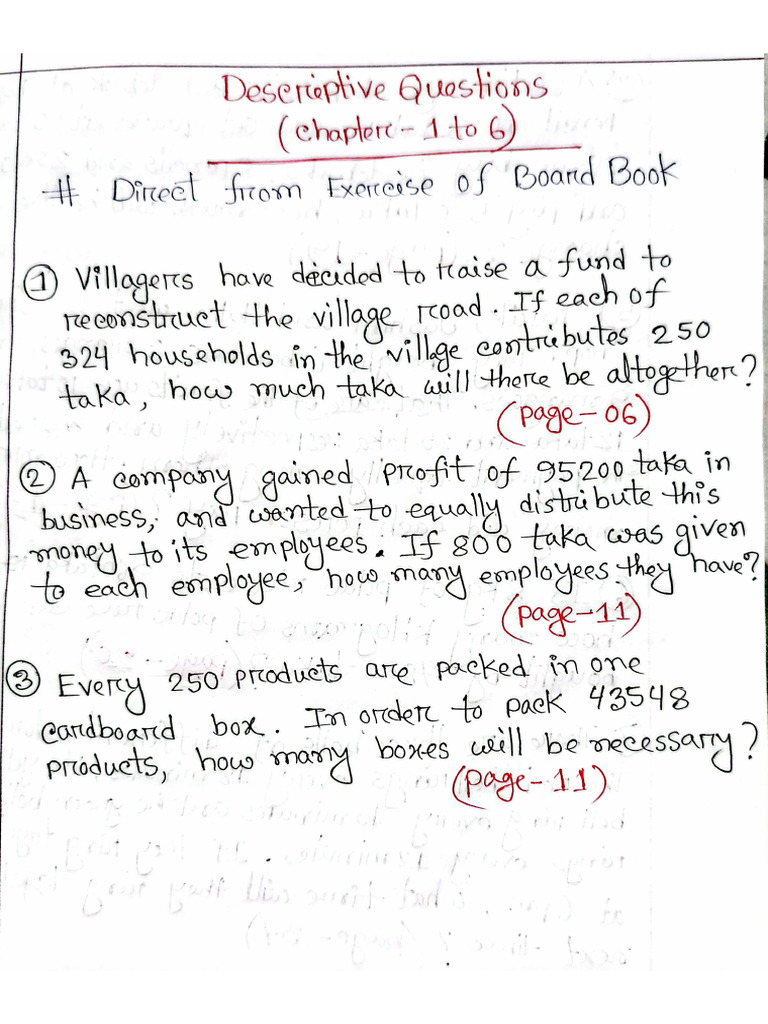 Descriptive Questions
(Chapter - 1 to 6)
# Direct from Exercise of Board Book
① Villagers have decided to raise a fund to
reconstruct the village road. If each of
324 households in the village contributes 250
taka, how much taka will there be altogether?
(page-06)
② A company gained profit of 95200 taka in
business, and wanted to equally distribute this
money to its employees. If 800 taka was given
to each employee, how many employees they have?
(page-11)
③ Every 250 products are packed in one
cardboard box. In order to pack 43548
products, how many boxes will be necessary?
(page-11)